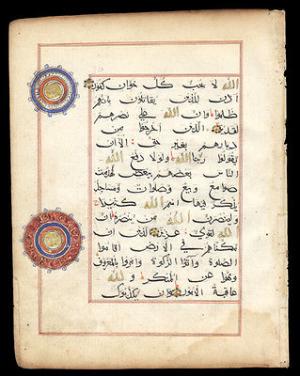 الله لا يحب كل خوان كفور
اذن للذين يقاتلون بانهم
ظلموا وان الله على نصرهم
لقدير الذين اخرجوا من
ديارهم بغير حق الا ان
يقولوا ربنا الله ولولا دفع الله
الناس بعضهم ببعض لهدمت
صوامع وبيع وصلوات ومساجد
يذكر فيها اسم الله كثيرا
ولينصرن الله من ينصره ان
الله لقوي عزيز الذين ان
مكناهم في الارض اقاموا
الصلوة واتوا الزكوة وامروا بالمعروف
ونهوا عن المنكر ولله
عاقبة الامور وان يكذبوك